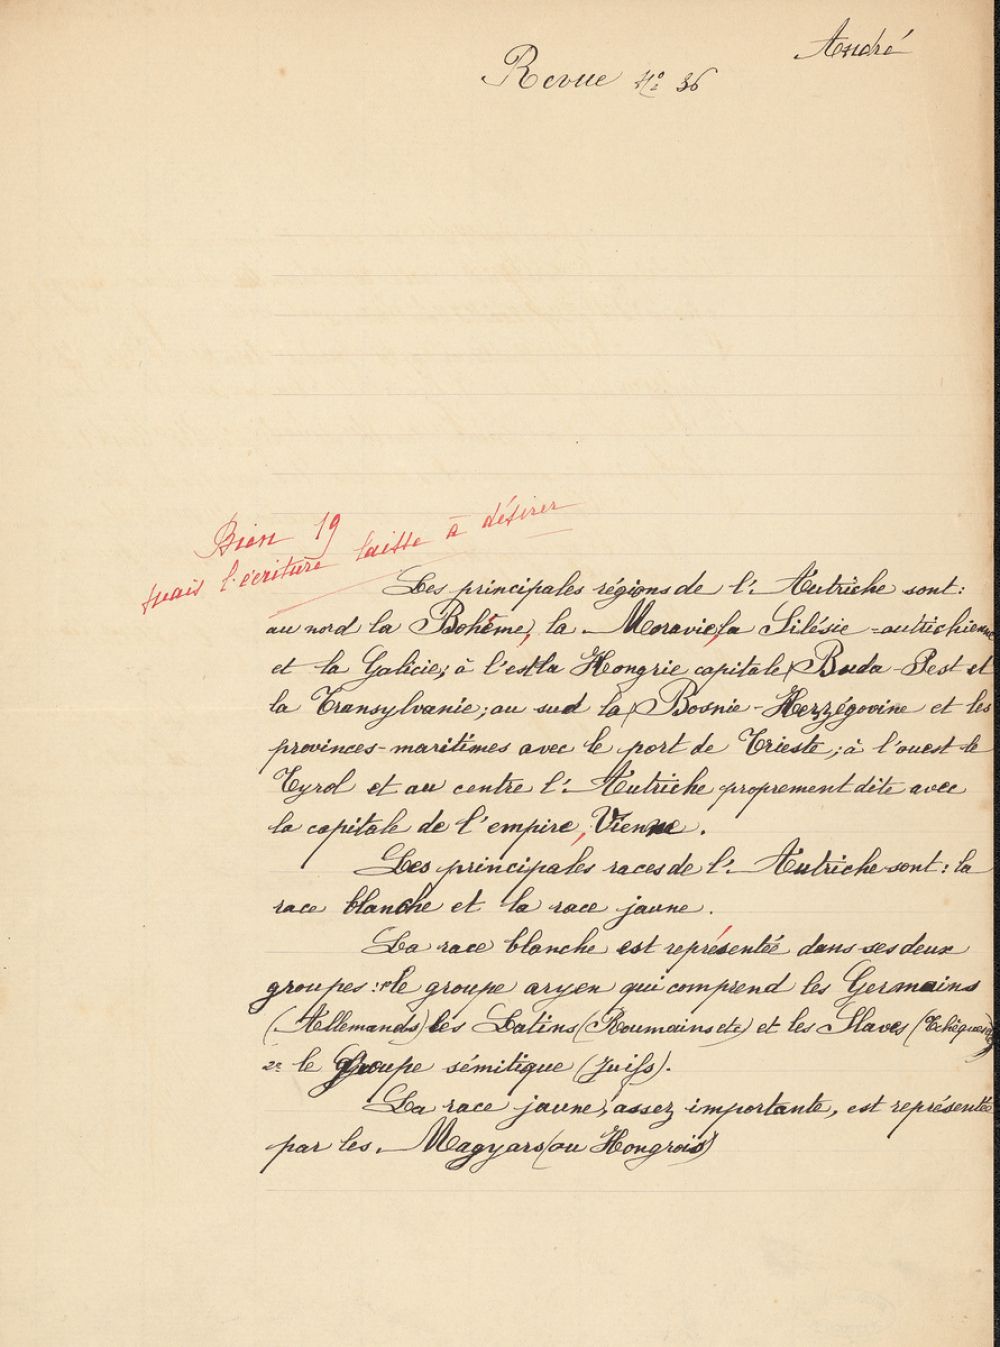 André
Revue Nº 36
Bien 19
mais l'écriture laisse à désirer
Les principales régions de l'Autriche sont:
au nord la Bohême, la Moravie, la Silésie-autrichienne
et la Galicie; à l'est la Hongrie capitale Buda-Pest et
la Transylvanie; au sud la Bosnie-Herzégovine et les
provinces-maritimes avec le port de Trieste; à l'ouest le
Tyrol et au centre l'Autriche proprement dite avec
la capitale de l'empire, Vienne.
Les principales races de l'Autriche sont: la
race blanche et la race jaune.
La race blanche est représentée dans ses deux
groupes: le groupe aryen qui comprend les Germains
(Allemands) les Latins (Roumains etc) et les Slaves (Tchèques
2º le groupe sémitique (Juifs).
La race jaune, assez importante, est représentée
par les Magyars (ou Hongrois)